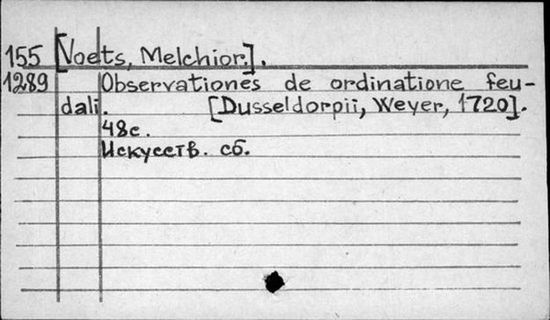 155 [Voets, Melchior.].
1289 Observationes de ordinatione feu-
dali. [Dusseldorpii, Weyer, 1720].
48с.
Искусств. сб.